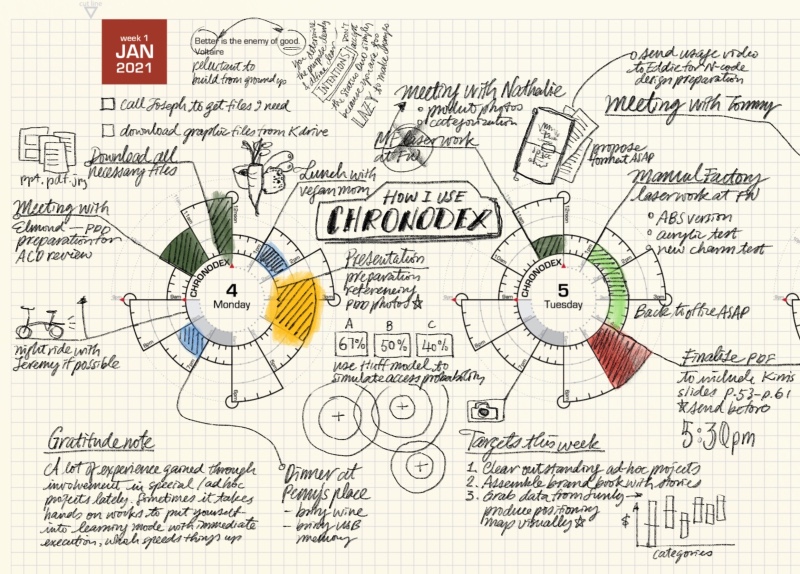 cut line
week 1
JAN
2021
Better is the enemy of good.
Voltaire
reluctant to
build from ground up
You determine
the purpose
INTENTIONS
DON'T
accept
the status quo simply
because you are too
LAZY to make changes
call Joseph to get files I need
download graphic files from K drive
ppt. pdf. jpg
Download all
necessary files
Meeting with
Elmond — PDD
preparation for
ACD review
night ride with
Jeremy if possible
Lunch with
vegan mom
HOW I USE
CHRONODEX
CHRONODEX
4
Monday
Presentation
preparation
referencing
PDD photos
A B C
67% 50% 40%
use Huff model to
simulate access probability
Dinner at
Penny's place
- bring wine
- bring USB
memory
Gratitude note
A lot of experience gained through
involvement in special / ad hoc
projects lately. Sometimes it takes
hands on works to put yourself
into learning mode with immediate
execution, which speeds things up
meeting with Nathalie
product photos
categorization
MF laser work
at FW
send usage video
to Eddie for N-code
design preparation
Meeting with Tommy
propose
format ASAP
Manual Factory
laser work at FW
ABS version
acrylic test
new charm test
CHRONODEX
5
Tuesday
Back to office ASAP
Finalize PDF
to include Kim's
slides P.53-p.61
send before
5:30pm
Targets this week
1. Clear outstanding ad-hoc projects
2. Assemble brand book with stories
3. Grab data from
produce positioning
map visually
$
categories